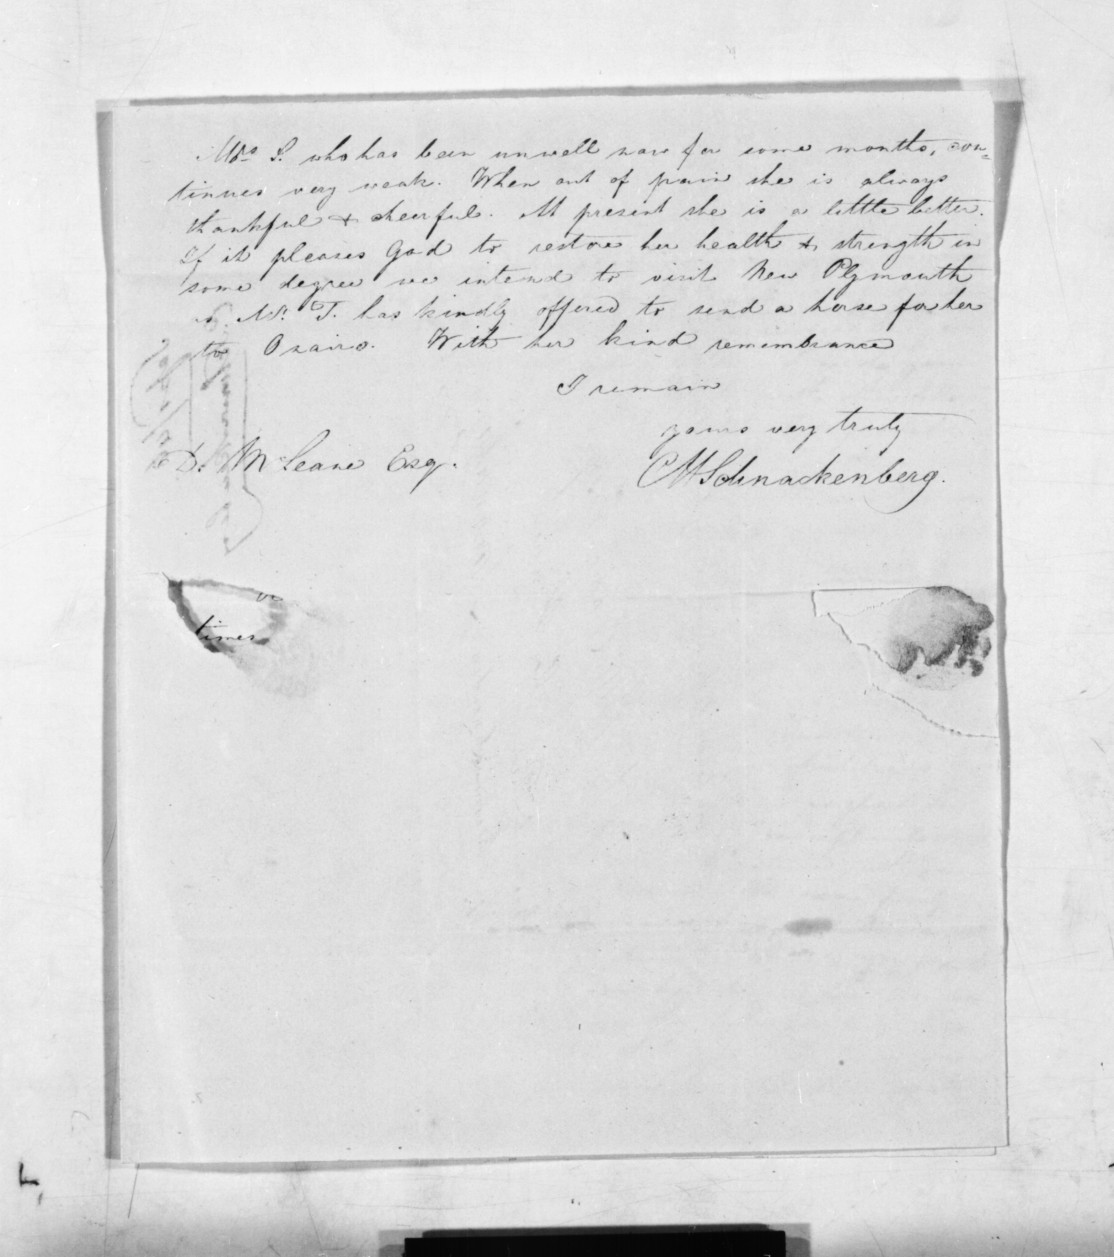 Mrs. S. who has been unwell now for some months, con=
tinues very weak. When out of pain she is always
thankful & cheerful. At present she is a little better.
If it pleases God to restore her health & strength in
some degree we intend to visit New Plymouth
Mr. T. has kindly offered to send a horse for her
to Onairo. With her kind remembrance
I remain
yours very truly
CH Schnackenberg.
D. McLeane Esq.
times